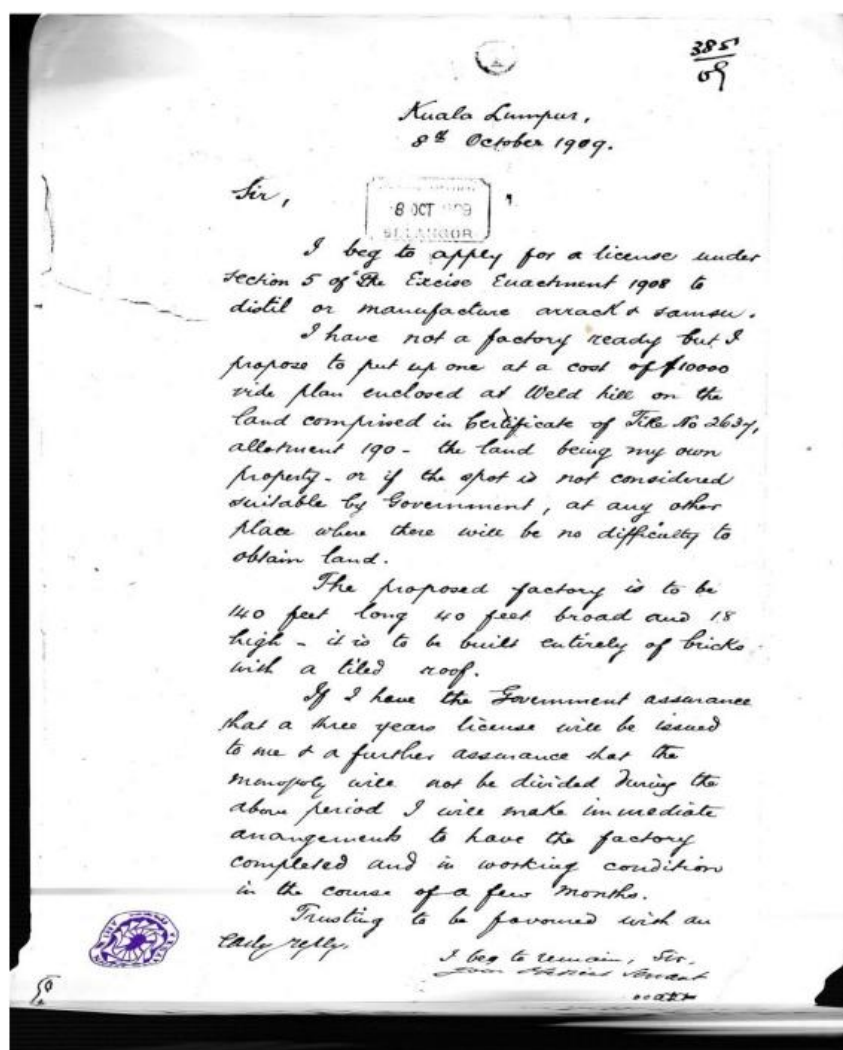 385
09
Kuala Lumpur,
8th October 1909.
Sir,
8 OCT 1909
SELANGOR
I beg to apply for a license under
section 5 of "The Excise Enactment 1908 to
distil or manufacture arrack & samsu.
I have not a factory ready but I
propose to put up one at a cost of $10000
vide plan enclosed at Weld hill on the
land comprised in Certificate of Title No 2637,
allotment 190 - the land being my own
property - or if the spot is not considered
suitable by Government, at any other
place where there will be no difficulty to
obtain land.
The proposed factory is to be
140 feet long 40 feet broad and 18
high - it is to be built entirely of bricks
with a tiled roof.
If I have the Government assurance
that a three years license will be issued
to me & a further assurance that the
monopoly will not be divided during the
above period I will make immediate
arrangements to have the factory
completed and in working condition
in the course of a few months.
Trusting to be favoured with an
early reply.
I beg to remain, Sir,
Your Obedient Servant